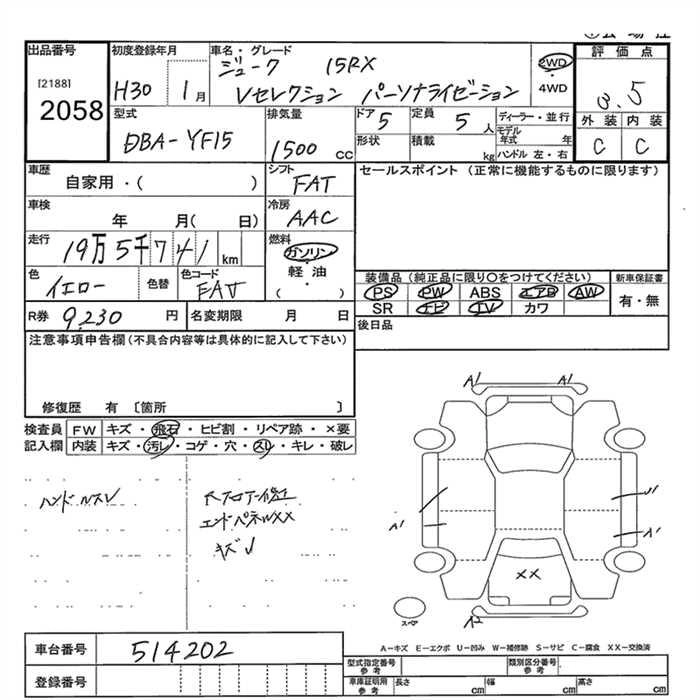 出品番号
[2188]
2058
初度登録年月
H30 1月
車名・グレード
ジューク 15RX
Vセレクション パーソナライゼーション
2WD
・
4WD
評価点
3.5
外装 内装
C C
型式
DBA-YF15
排気量
1500 cc
ドア
5
定員
5人
形状
積載
kg
ディーラー・並行
モデル年式 年
ハンドル 左・右
車歴
自家用・( )
シフト
FAT
セールスポイント (正常に機能するものに限ります)
車検
年 月( 日)
冷房
AAC
走行
19万5千741km
燃料
ガソリン
・
軽油
( )
色
イエロー
色替
色コード
EAV
装備品 (純正品に限り○をつけてください)
PS PW ABS エアB AW
SR ナビ TV カワ
新車保証書
有・無
R券 9,230円
名変期限 月 日
後日品
注意事項申告欄(不具合内容等は具体的に記入して下さい)
修復歴 有 〔箇所 〕
検査員 FW キズ・飛石・ヒビ割・リペア跡・×要
記入欄 内装 キズ・汚レ・コゲ・穴・スレ・キレ・破レ
ハンドルスレ
エンドパネルXX
キズ
A1 A1
A1
A1
XX
スペア
A2
A-キズ E-エクボ U-凹み W-補修跡 S-サビ C-腐食 XX-交換済
車台番号 514202
登録番号
型式指定番号
参考
類別区分番号
参考
車庫証明用
参考
長さ cm
幅 cm
高さ cm